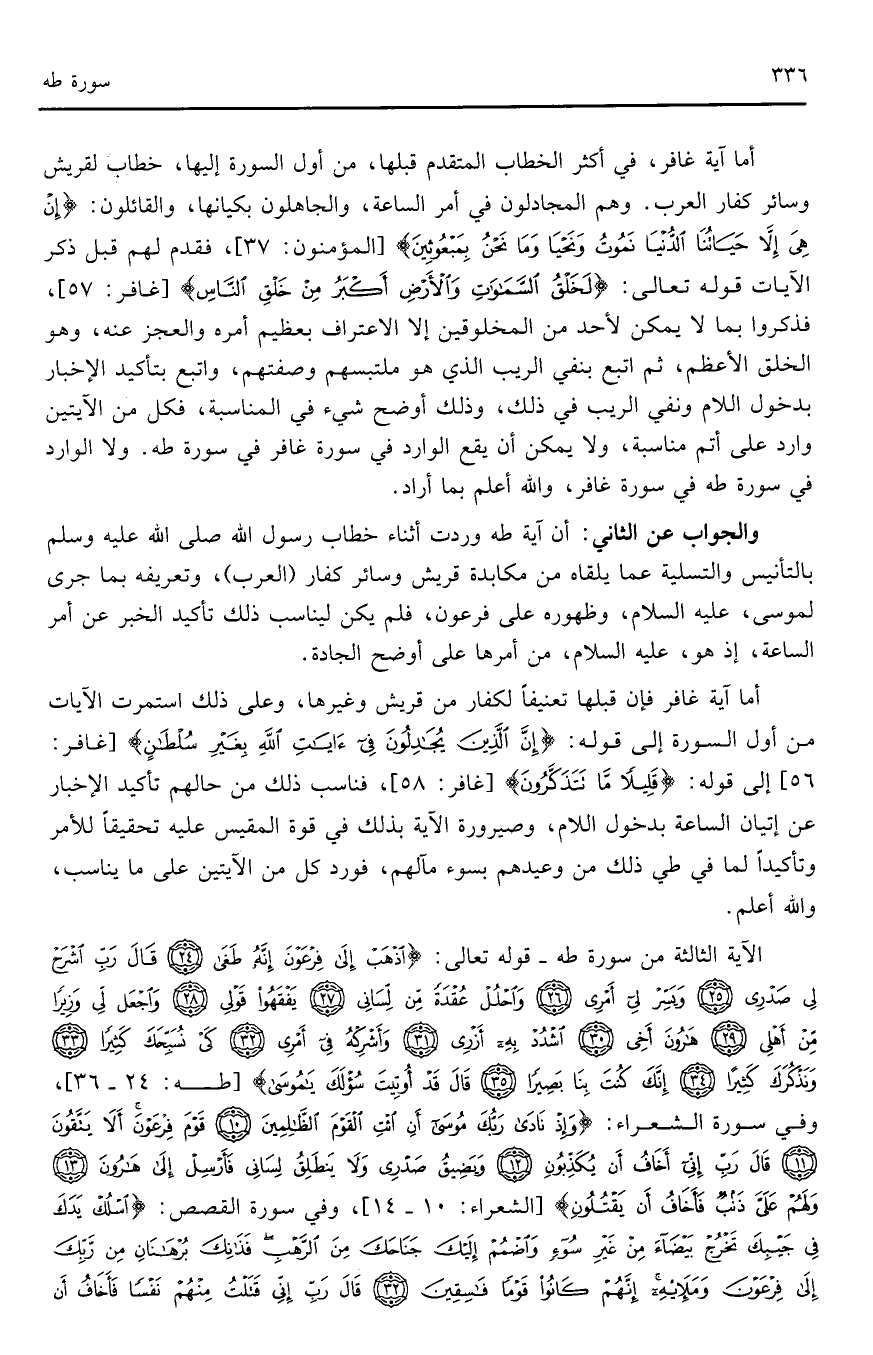 ٣٣٦
سورة طه
أما آية غافر، في أكثر الخطاب المتقدم قبلها، من أول السورة إليها، خطاب لقريش
وسائر كفار العرب. وهم المجادلون في أمر الساعة، والجاهلون بكيانها، والقائلون: ﴿إِنْ
هِىَ إِلَّا حَيَاتُنَا ٱلدُّنْيَا نَمُوتُ وَنَحْيَا وَمَا نَحْنُ بِمَبْعُوثِينَ﴾ [المؤمنون: ٣٧]، فقدم لهم قبل ذكر
الآيات قوله تعالى: ﴿لَخَلْقُ ٱلسَّمَٰوَٰتِ وَٱلْأَرْضِ أَكْبَرُ مِنْ خَلْقِ ٱلنَّاسِ﴾ [غافر: ٥٧]،
فذكروا بما لا يمكن لأحد من المخلوقين إلا الاعتراف بعظيم أمره والعجز عنه، وهو
الخلق الأعظم، ثم اتبع بنفي الريب الذي هو ملتبسهم وصفتهم، واتبع بتأكيد الإخبار
بدخول اللام ونفي الريب في ذلك، وذلك أوضح شيء في المناسبة، فكل من الآيتين
وارد على أتم مناسبة، ولا يمكن أن يقع الوارد في سورة غافر في سورة طه. ولا الوارد
في سورة طه في سورة غافر، والله أعلم بما أراد.
والجواب عن الثاني: أن آية طه وردت أثناء خطاب رسول الله صلى الله عليه وسلم
بالتأنيس والتسلية عما يلقاه من مكابدة قريش وسائر كفار (العرب)، وتعريفه بما جرى
لموسى، عليه السلام، وظهوره على فرعون، فلم يكن ليناسب ذلك تأكيد الخبر عن أمر
الساعة، إذ هو، عليه السلام، من أمرها على أوضح الجادة.
أما آية غافر فإن قبلها تعنيفاً لكفار من قريش وغيرها، وعلى ذلك استمرت الآيات
من أول السورة إلى قوله: ﴿إِنَّ ٱلَّذِينَ يُجَٰدِلُونَ فِىٓ ءَايَٰتِ ٱللَّهِ بِغَيْرِ سُلْطَٰنٍ﴾ [غافر:
٥٦] إلى قوله: ﴿قَلِيلًا مَّا نَتَذَكَّرُونَ﴾ [غافر: ٥٨]، فناسب ذلك من حالهم تأكيد الإخبار
عن إتيان الساعة بدخول اللام، وصيرورة الآية بذلك في قوة المقيس عليه تحقيقاً للأمر
وتأكيداً لما في طي ذلك من وعيدهم بسوء مآلهم، فورد كل من الآيتين على ما يناسب،
والله أعلم.
الآية الثالثة من سورة طه ـ قوله تعالى: ﴿ٱذْهَبْ إِلَىٰ فِرْعَوْنَ إِنَّهُۥ طَغَىٰ ﴿٢٤﴾ قَالَ رَبِّ ٱشْرَحْ
لِى صَدْرِى ﴿٢٥﴾ وَيَسِّرْ لِىٓ أَمْرِى ﴿٢٦﴾ وَٱحْلُلْ عُقْدَةً مِّن لِّسَانِى ﴿٢٧﴾ يَفْقَهُوا۟ قَوْلِى ﴿٢٨﴾ وَٱجْعَل لِّى وَزِيرًا
مِّنْ أَهْلِى ﴿٢٩﴾ هَٰرُونَ أَخِى ﴿٣٠﴾ ٱشْدُدْ بِهِۦٓ أَزْرِى ﴿٣١﴾ وَأَشْرِكْهُ فِىٓ أَمْرِى ﴿٣٢﴾ كَىْ نُسَبِّحَكَ كَثِيرًا ﴿٣٣﴾
وَنَذْكُرَكَ كَثِيرًا ﴿٣٤﴾ إِنَّكَ كُنتَ بِنَا بَصِيرًا ﴿٣٥﴾ قَالَ قَدْ أُوتِيتَ سُؤْلَكَ يَٰمُوسَىٰ﴾ [طه: ٢٤ ـ ٣٦]،
وفي سورة الشعراء: ﴿وَإِذْ نَادَىٰ رَبُّكَ مُوسَىٰٓ أَنِ ٱئْتِ ٱلْقَوْمَ ٱلظَّٰلِمِينَ ﴿١٠﴾ قَوْمَ فِرْعَوْنَ ۚ أَلَا يَتَّقُونَ
﴿١١﴾ قَالَ رَبِّ إِنِّىٓ أَخَافُ أَن يُكَذِّبُونِ ﴿١٢﴾ وَيَضِيقُ صَدْرِى وَلَا يَنطَلِقُ لِسَانِى فَأَرْسِلْ إِلَىٰ هَٰرُونَ ﴿١٣﴾
وَلَهُمْ عَلَىَّ ذَنۢبٌ فَأَخَافُ أَن يَقْتُلُونِ﴾ [الشعراء: ١٠ ـ ١٤]، وفي سورة القصص: ﴿ٱسْلُكْ يَدَكَ
فِى جَيْبِكَ تَخْرُجْ بَيْضَآءَ مِنْ غَيْرِ سُوٓءٍ وَٱضْمُمْ إِلَيْكَ جَنَاحَكَ مِنَ ٱلرَّهْبِ ۖ فَذَٰنِكَ بُرْهَٰنَانِ مِن رَّبِّكَ
إِلَىٰ فِرْعَوْنَ وَمَلَإِي۟هِۦٓ ۚ إِنَّهُمْ كَانُوا۟ قَوْمًا فَٰسِقِينَ ﴿٣٢﴾ قَالَ رَبِّ إِنِّى قَتَلْتُ مِنْهُمْ نَفْسًا فَأَخَافُ أَن